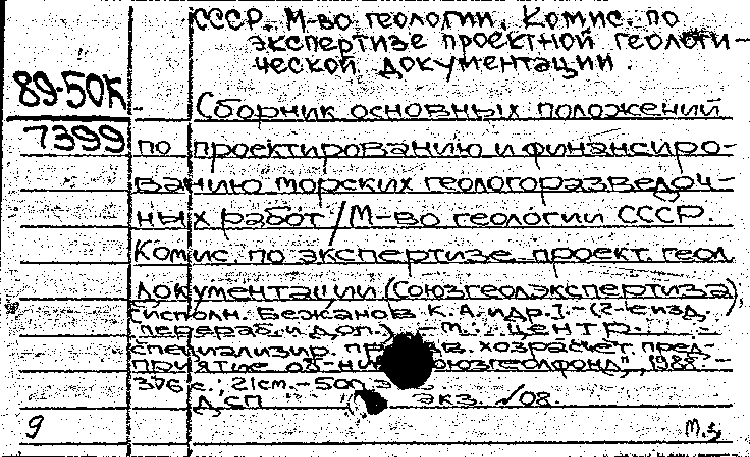 СССР. М-во геологии. Комис. по
экспертизе проектной геологи-
ческой документации.
89-50К
7399
Сборник основных положений
по проектированию и финансиро-
ванию морских геологоразведоч-
ных работ / М-во геологии СССР.
Комис. по экспертизе проект. геол.
документации (Союзгеолэкспертиза);
[исполн. Бежанов К. А. и др.]. - [2-е изд.,
перераб. и доп.] - М.: Центр.
специализир. хозрасчет. пред-
приятие об-ния "Союзгеолфонд", 1988. -
376 с.; 21 см. - 500 э
ДСП экз. №08.
9